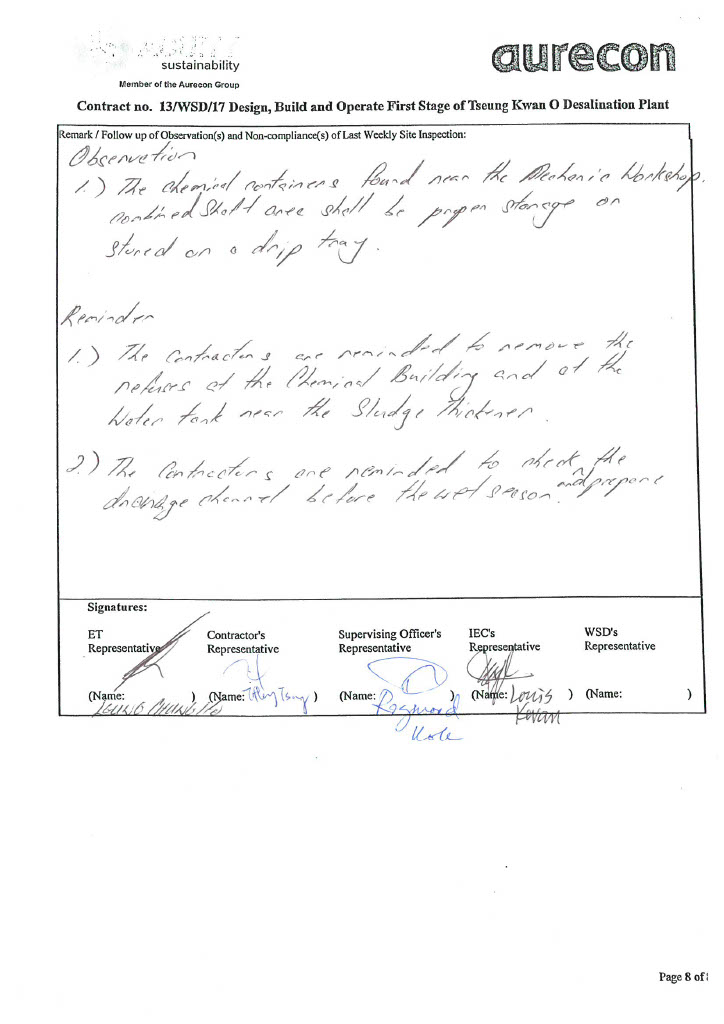 sustainability
aurecon
Member of the Aurecon Group
Contract no. 13/WSD/17 Design, Build and Operate First Stage of Tseung Kwan O Desalination Plant
Remark / Follow up of Observation(s) and Non-compliance(s) of Last Weekly Site Inspection:
Observation
1.) The chemical containers found near the Mechanic Workshop.
combined shaft area shall be proper storage or
stored on a drip tray.
Reminder
1.) The Contractors are reminded to remove the
refuses at the Chemical Building and at the
Water tank near the Sludge Thickener.
2.) The Contractors are reminded to check the
and prepare
drainage channel before the wet season.
Signatures:
ET Representative
Contractor's Representative
Supervising Officer's Representative
IEC's Representative
WSD's Representative
(Name: )
(Name: )
(Name: Raymond )
(Name: Louis Kwan )
(Name: )
Page 8 of